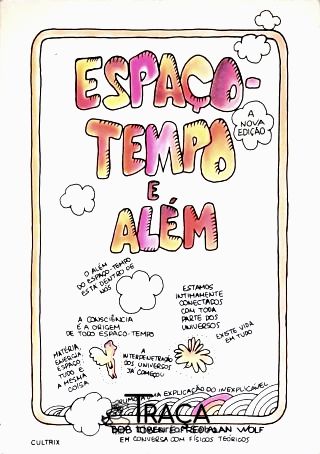 ESPAÇO-
TEMPO
E
ALÉM
A
NOVA
EDIÇÃO
O ALÉM
DO ESPAÇO-TEMPO
ESTÁ DENTRO DE
NÓS
A CONSCIÊNCIA
É A ORIGEM
DE TODO ESPAÇO-TEMPO
ESTAMOS
INTIMAMENTE
CONECTADOS
COM TODA
PARTE DOS
UNIVERSOS
EXISTE VIDA
EM TUDO
MATÉRIA,
ENERGIA,
ESPAÇO-
TUDO É
A MESMA
COISA
A
INTERPENETRAÇÃO
DOS UNIVERSOS
JÁ COMEÇOU
RUMO A UMA EXPLICAÇÃO DO INEXPLICÁVEL
TRAÇA
BOB TOBEN E FRED ALAN WOLF
EM CONVERSA COM FÍSICOS TEÓRICOS
CULTRIX